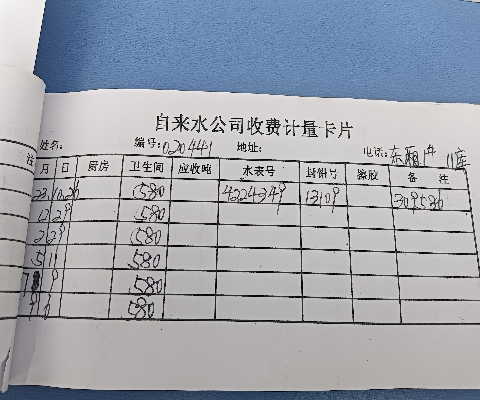 自来水公司收费计量卡片
姓名: 编号: 020441 地址: 电话: 东
月 日 厨房 卫生间 应收吨 水表号 封铅号 橡胶 备 注
580 4224349 13109 309530
12 29 580
2 29 580
5 11 580
9 580
580